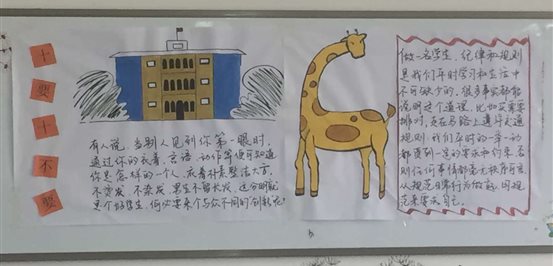 十
要
十
不
要
有人说,当别人见到你第一眼时,
通过你的衣着、言语、动作等便可知道
你是怎样的一个人,衣着朴素整洁大方,
不烫发 不染发 男生不留长发,这分明就
是个好学生,何必要来个与众不同的
做一名学生,纪律和规则
是我们平时学习和生活中
不可缺少的。很多事实都能
说明这个道理。比如买票要
排队,走在马路上遵守交通
规则,我们平时的一举一动
都受到一定的要求和约束,否
则任何事情都毫无秩序可言,
从规范日常行为做起,用规
范来要求自己。